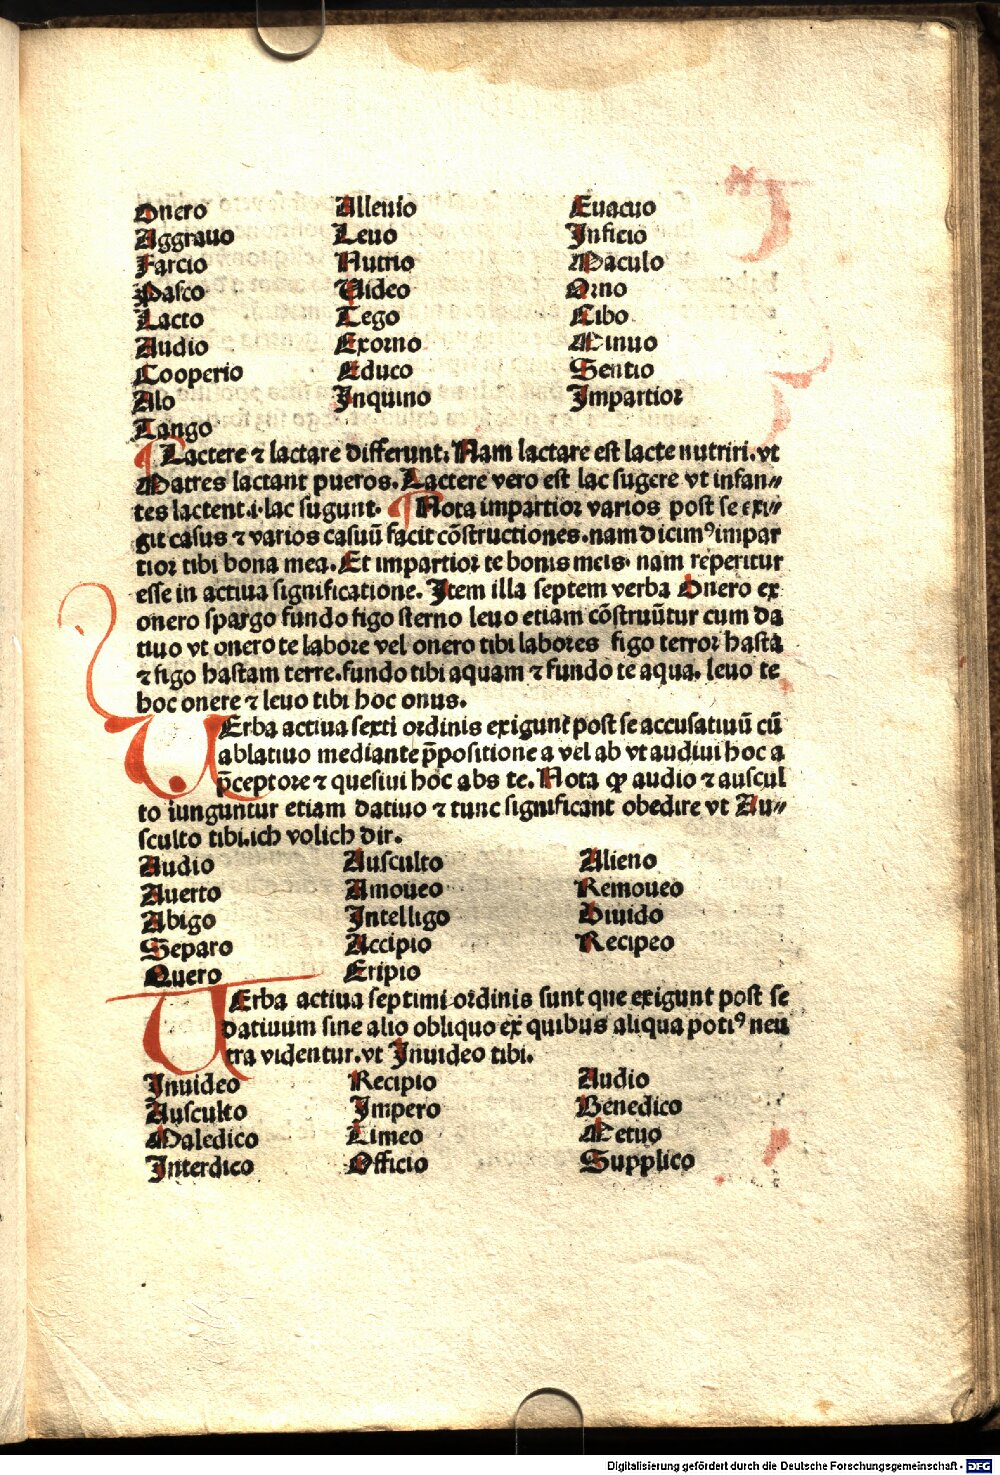 Onero Alleuio Euacuo
Aggrauo Leuo Inficio
Farcio Nutrio Maculo
Pasco Uideo Orno
Lacto Tego Cibo
Audio Exorno Minuo
Cooperio Educo Sentio
Alo Inquino Impartior
Tango
¶ Lactere ⁊ lactare differunt. Nam lactare est lacte nutriri. vt
Matres lactant pueros. Lactere vero est lac sugere vt infan⸗
tes lactent .i. lac sugunt. ¶ Nota impartior varios post se exi⸗
git casus ⁊ varios casuū facit cōstructiones. nam dicimꝰ impar
tior tibi bona mea. Et impartior te bonis meis. nam reperitur
esse in actiua significatione. Item illa septem verba Onero ex
onero spargo fundo figo sterno leuo etiam cōstruūtur cum da
tiuo vt onero te labore vel onero tibi labores figo terror hasta
⁊ figo hastam terre. fundo tibi aquam ⁊ fundo te aqua. leuo te
hoc onere ⁊ leuo tibi hoc onus.
UErba actiua sexti ordinis exigunt post se accusatiuū cū
ablatiuo mediante p̄positione a vel ab vt audiui hoc a
p̄ceptore ⁊ quesiui hoc abs te. Nota ꝙ audio ⁊ auscul
to iunguntur etiam datiuo ⁊ tunc significant obedire vt Au⸗
sculto tibi. ich volich dir.
Audio Ausculto Alieno
Auerto Amoueo Remoueo
Abigo Intelligo Diuido
Separo Accipio Recipeo
Quero Eripio
UErba actiua septimi ordinis sunt que exigunt post se
datiuum sine alio obliquo ex quibus aliqua potiꝰ neu
tra videntur. vt Inuideo tibi.
Inuideo Recipio Audio
Ausculto Impero Benedico
Maledico Timeo Metuo
Interdico Officio Supplico
Digitalisierung gefördert durch die Deutsche Forschungsgemeinschaft - DFG